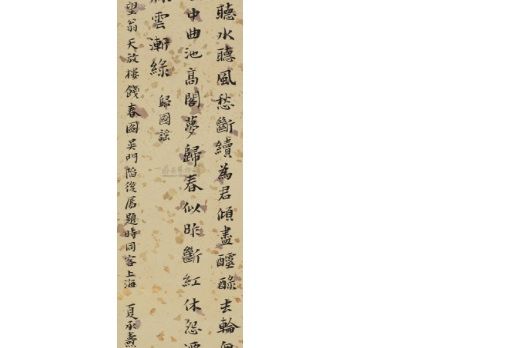 聽水聽風愁斷續為君傾盡醽醁去輪
中曲池高閣夢歸春似昨斷紅休怨
雲漸綠 歸國謠
望翁天放樓餞春圖吳門陷後屬題時同客上海 夏承燾